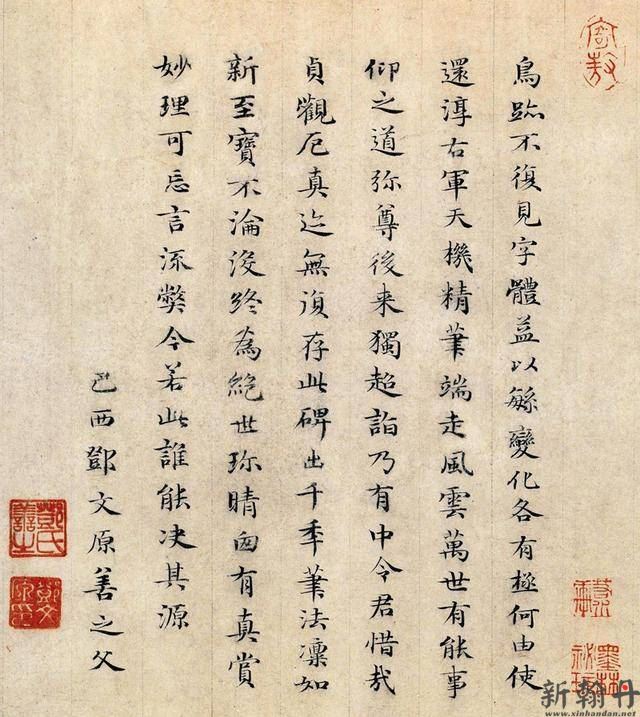 鳥跡不復見字體益以緐變化各有極何由使
還淳右軍天機精筆端走風雲萬世有能事
仰之道弥尊後来獨超詣乃有中令君惜哉
貞觀厄真迹無復存此碑出千年筆法凜如
新至寶不淪没終為絕世珍晴窗有真賞
妙理可忘言流弊今若此誰能决其源
己酉鄧文原善之父
墨林秘玩
新翰丹
www.xinhandan.net